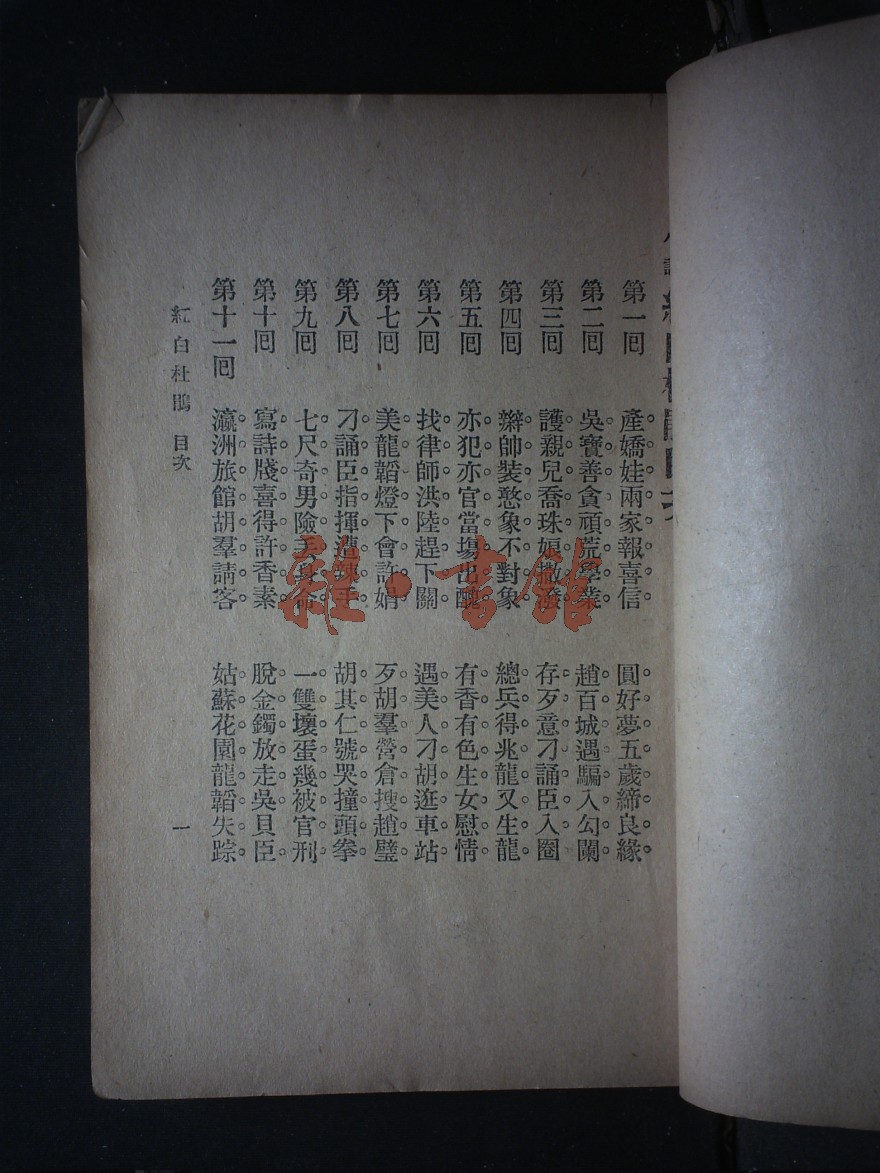 第一回 產嬌娃兩家報喜信 圓好夢五歲締良緣
第二回 吳寶善貪頑荒學業 趙百城遇騙入勾闌
第三回 護親兒喬珠娘撒潑 存歹意刁誦臣入圈
第四回 辮帥裝憨象不對象 總兵得兆龍又生龍
第五回 亦犯亦官當場出醜 有香有色生女慰情
第六回 找律師洪陸趕下關 遇美人刁胡逛車站
第七回 美龍韜燈下會許娟 歹胡羣營倉搜趙璧
第八回 刁誦臣指揮遭辣手 胡其仁號哭撞頭拳
第九回 七尺奇男險丟身命 一雙壞蛋幾被官刑
第十回 寫詩牋喜得許香素 脫金鐲放走吳貝臣
第十一回 瀛洲旅館胡羣請客 姑蘇花園龍韜失踪
紅白杜鵑 目次
一
雜·書館